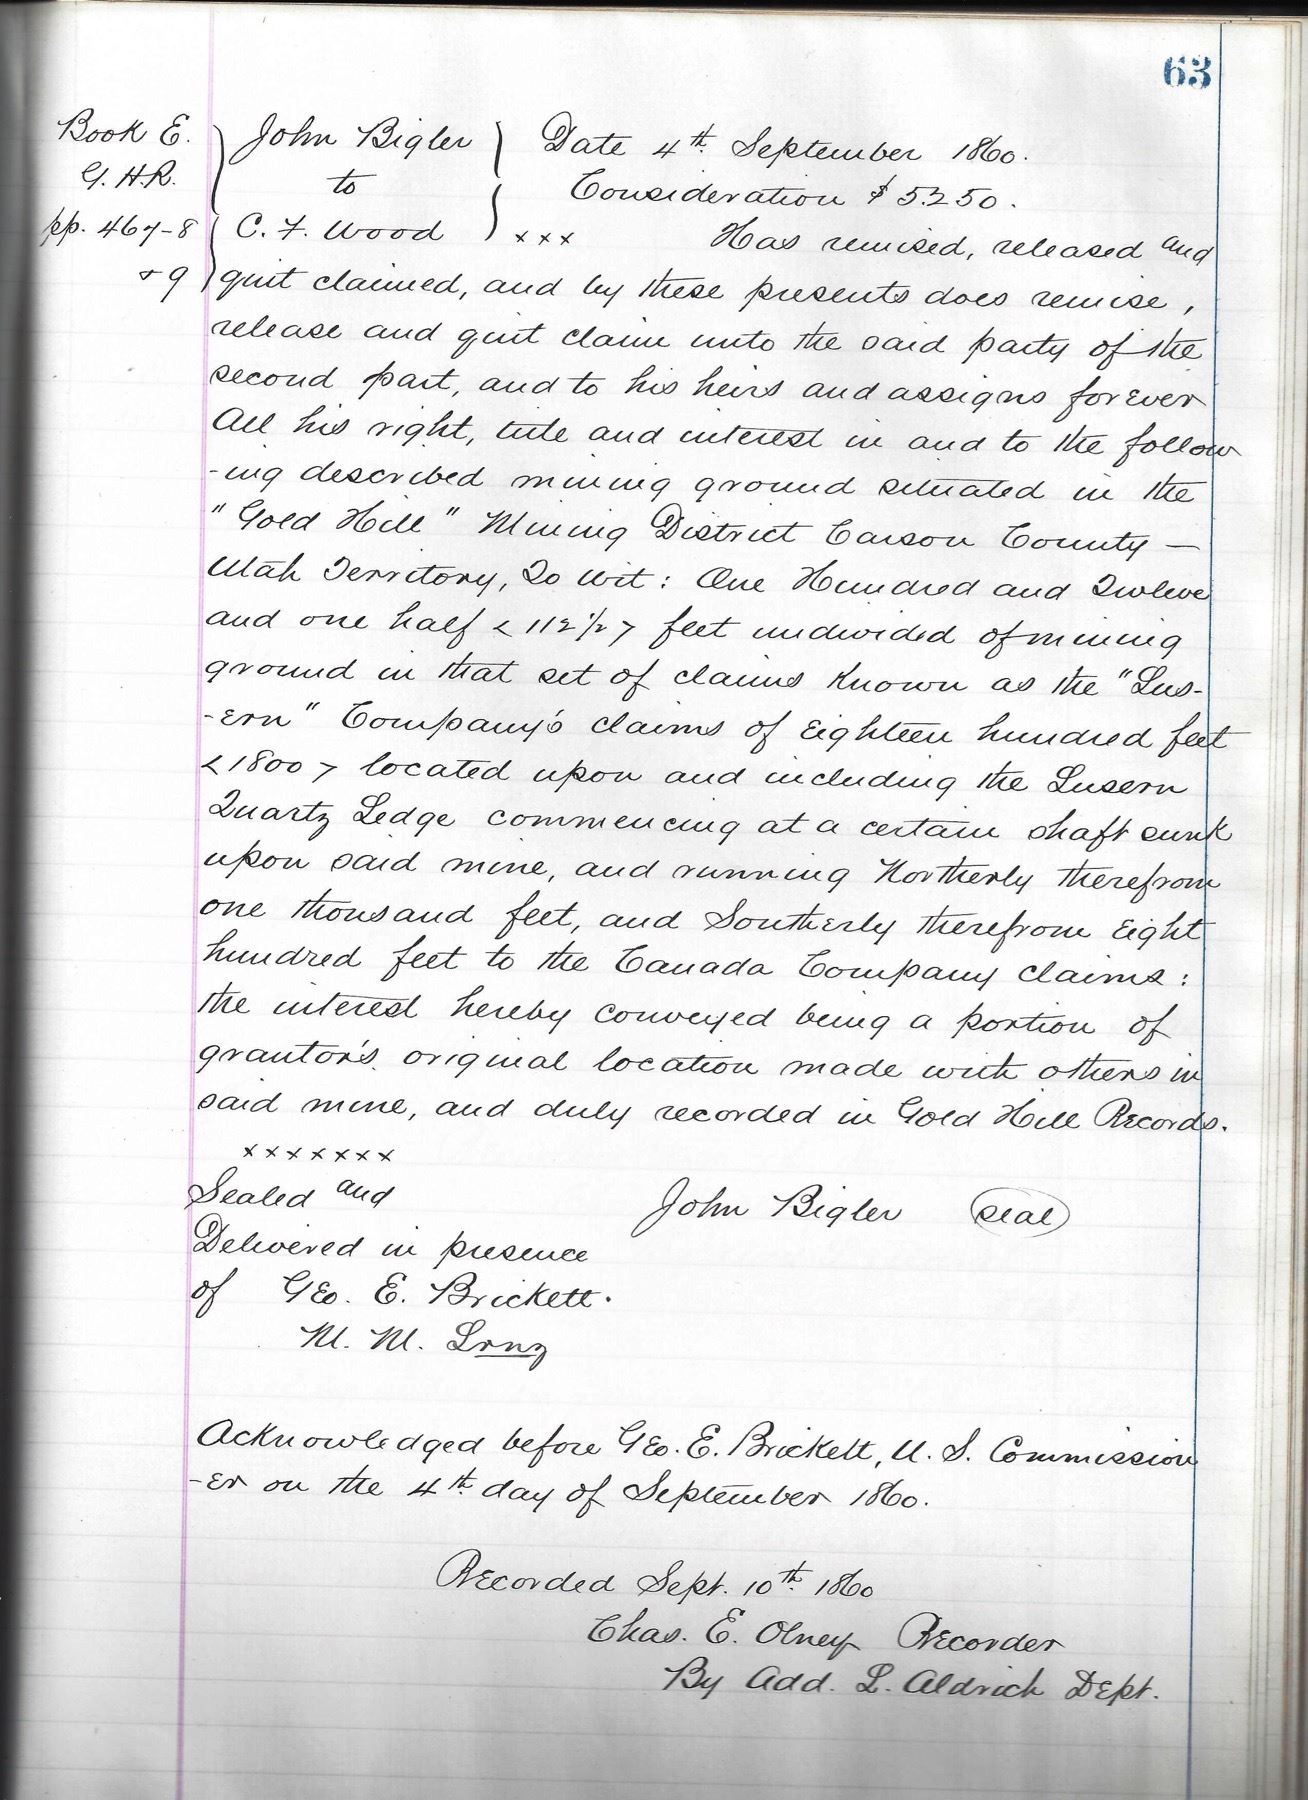 63
Book E. John Bigler Date 4th September 1860.
G.H.R. to Consideration $5250.
pp. 467-8 C. F. Wood xxx Has remised, released and
& 9 quit claimed, and by these presents does remise,
release and quit claim unto the said party of the
second part, and to his heirs and assigns forever
All his right, title and interest in and to the follow
-ing described mining ground situated in the
"Gold Hill" Mining District Carson County —
Utah Territory, To wit: One Hundred and Twelve
and one half <112 1/2> feet undivided of mining
ground in that set of claims known as the "Lus-
-ern" Company's claims of Eighteen hundred feet
<1800> located upon and including the Lusern
Quartz Ledge commencing at a certain shaft sunk
upon said mine, and running Northerly therefrom
one thousand feet, and Southerly therefrom Eight
hundred feet to the Canada Company claims:
the interest hereby conveyed being a portion of
grantor's original location made with others in
said mine, and duly recorded in Gold Hill Records.
xxxxxxx
Sealed and John Bigler seal
Delivered in presence
of Geo. E. Brickett.
M. M.
Acknowledged before Geo. E. Brickett, U. S. Commission
-er on the 4th day of September 1860.
Recorded Sept. 10th 1860
Chas. E. Olney Recorder
By Add. L. Aldrich Dept.